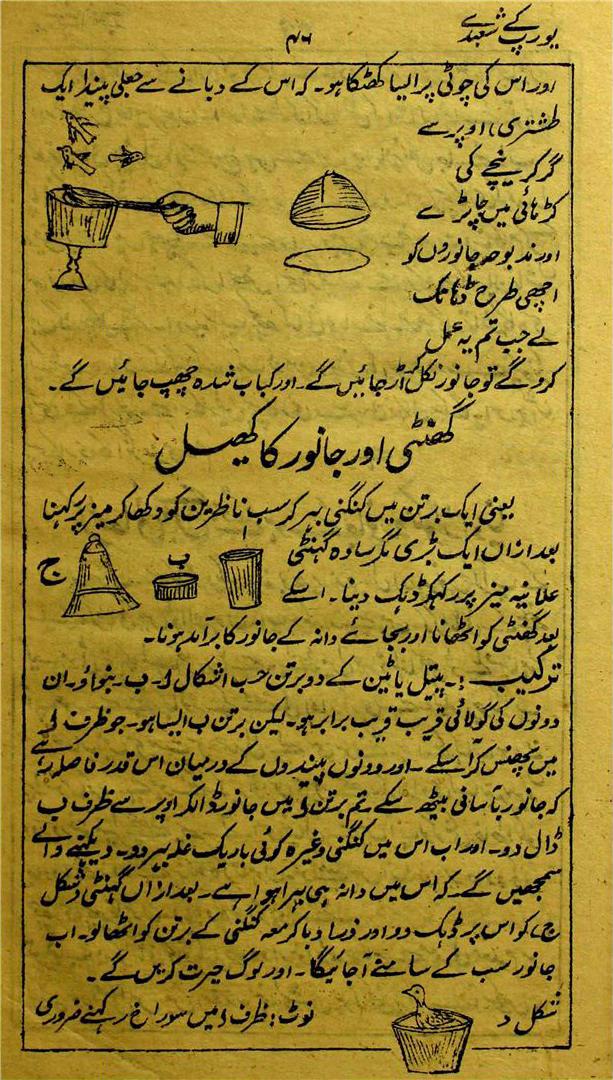 یورپ کے شعبدے
۴۶
اور اس کی چوٹی پر ایسا کھٹکا ہو۔ کہ اس کے دبانے سے جعلی پیندا ایک
طشتری ا، اوپر سے
گر کر نیچے کی
کڑہائی میں جا پڑے
اور ند بوحہ جانوروں کو
اچھی طرح ڈہانک
لے جب تم یہ عمل
کرو گے تو جانور نکل کر اڑ جائیں گے۔ اور کباب شدہ چھپ جائیں گے۔
گھنٹی اور جانور کا کھیل
یعنی ایک برتن میں کنگنی بہر کر سب ناظرین کو دکھا کر میز پر رکہنا
بعد ازاں ایک بڑی مگر سادہ گہنٹی
علانیہ میز پر رکہکر ڈہک دینا۔ اسکے
بعد گھنٹی کو اٹھانا اور بجائے دانہ کے جانور کا برآمد ہونا۔
ا
ب
ج
ترکیب:۔ پیتل یا ٹین کے دو برتن حسب اشکال ا۔ ب۔ بنواؤ۔ ان
دونوں کی گولائی قریب قریب برابر ہو۔ لیکن برتن ب ایسا ہو۔ جو ظرف ا
میں پھنس کر آ سکے۔ اور دونوں پیندوں کے درمیان اس قدر فاصلہ رہے
کہ جانور بآسانی بیٹھ سکے۔ تم برتن ا میں جانور ڈالکر اوپر سے ظرف ب
ڈال دو۔ اور اب اس میں کنگنی وغیرہ کوئی باریک غلہ بہر دو۔ دیکہنے والے
سمجھیں گے۔ کہ اس میں دانہ ہی بہرا ہوا ہے۔ بعد ازاں گہنٹی (شکل
ج) کو اس پر ڈہک دو اور ذرا دبا کر معہ کنگنی کے برتن کو اٹھا لو۔ اب
جانور سب کے سامنے آ جائیگا۔ اور لوگ حیرت کریں گے۔
شکل د
نوٹ: ظرف ا میں سوراخ رکہنے ضروری